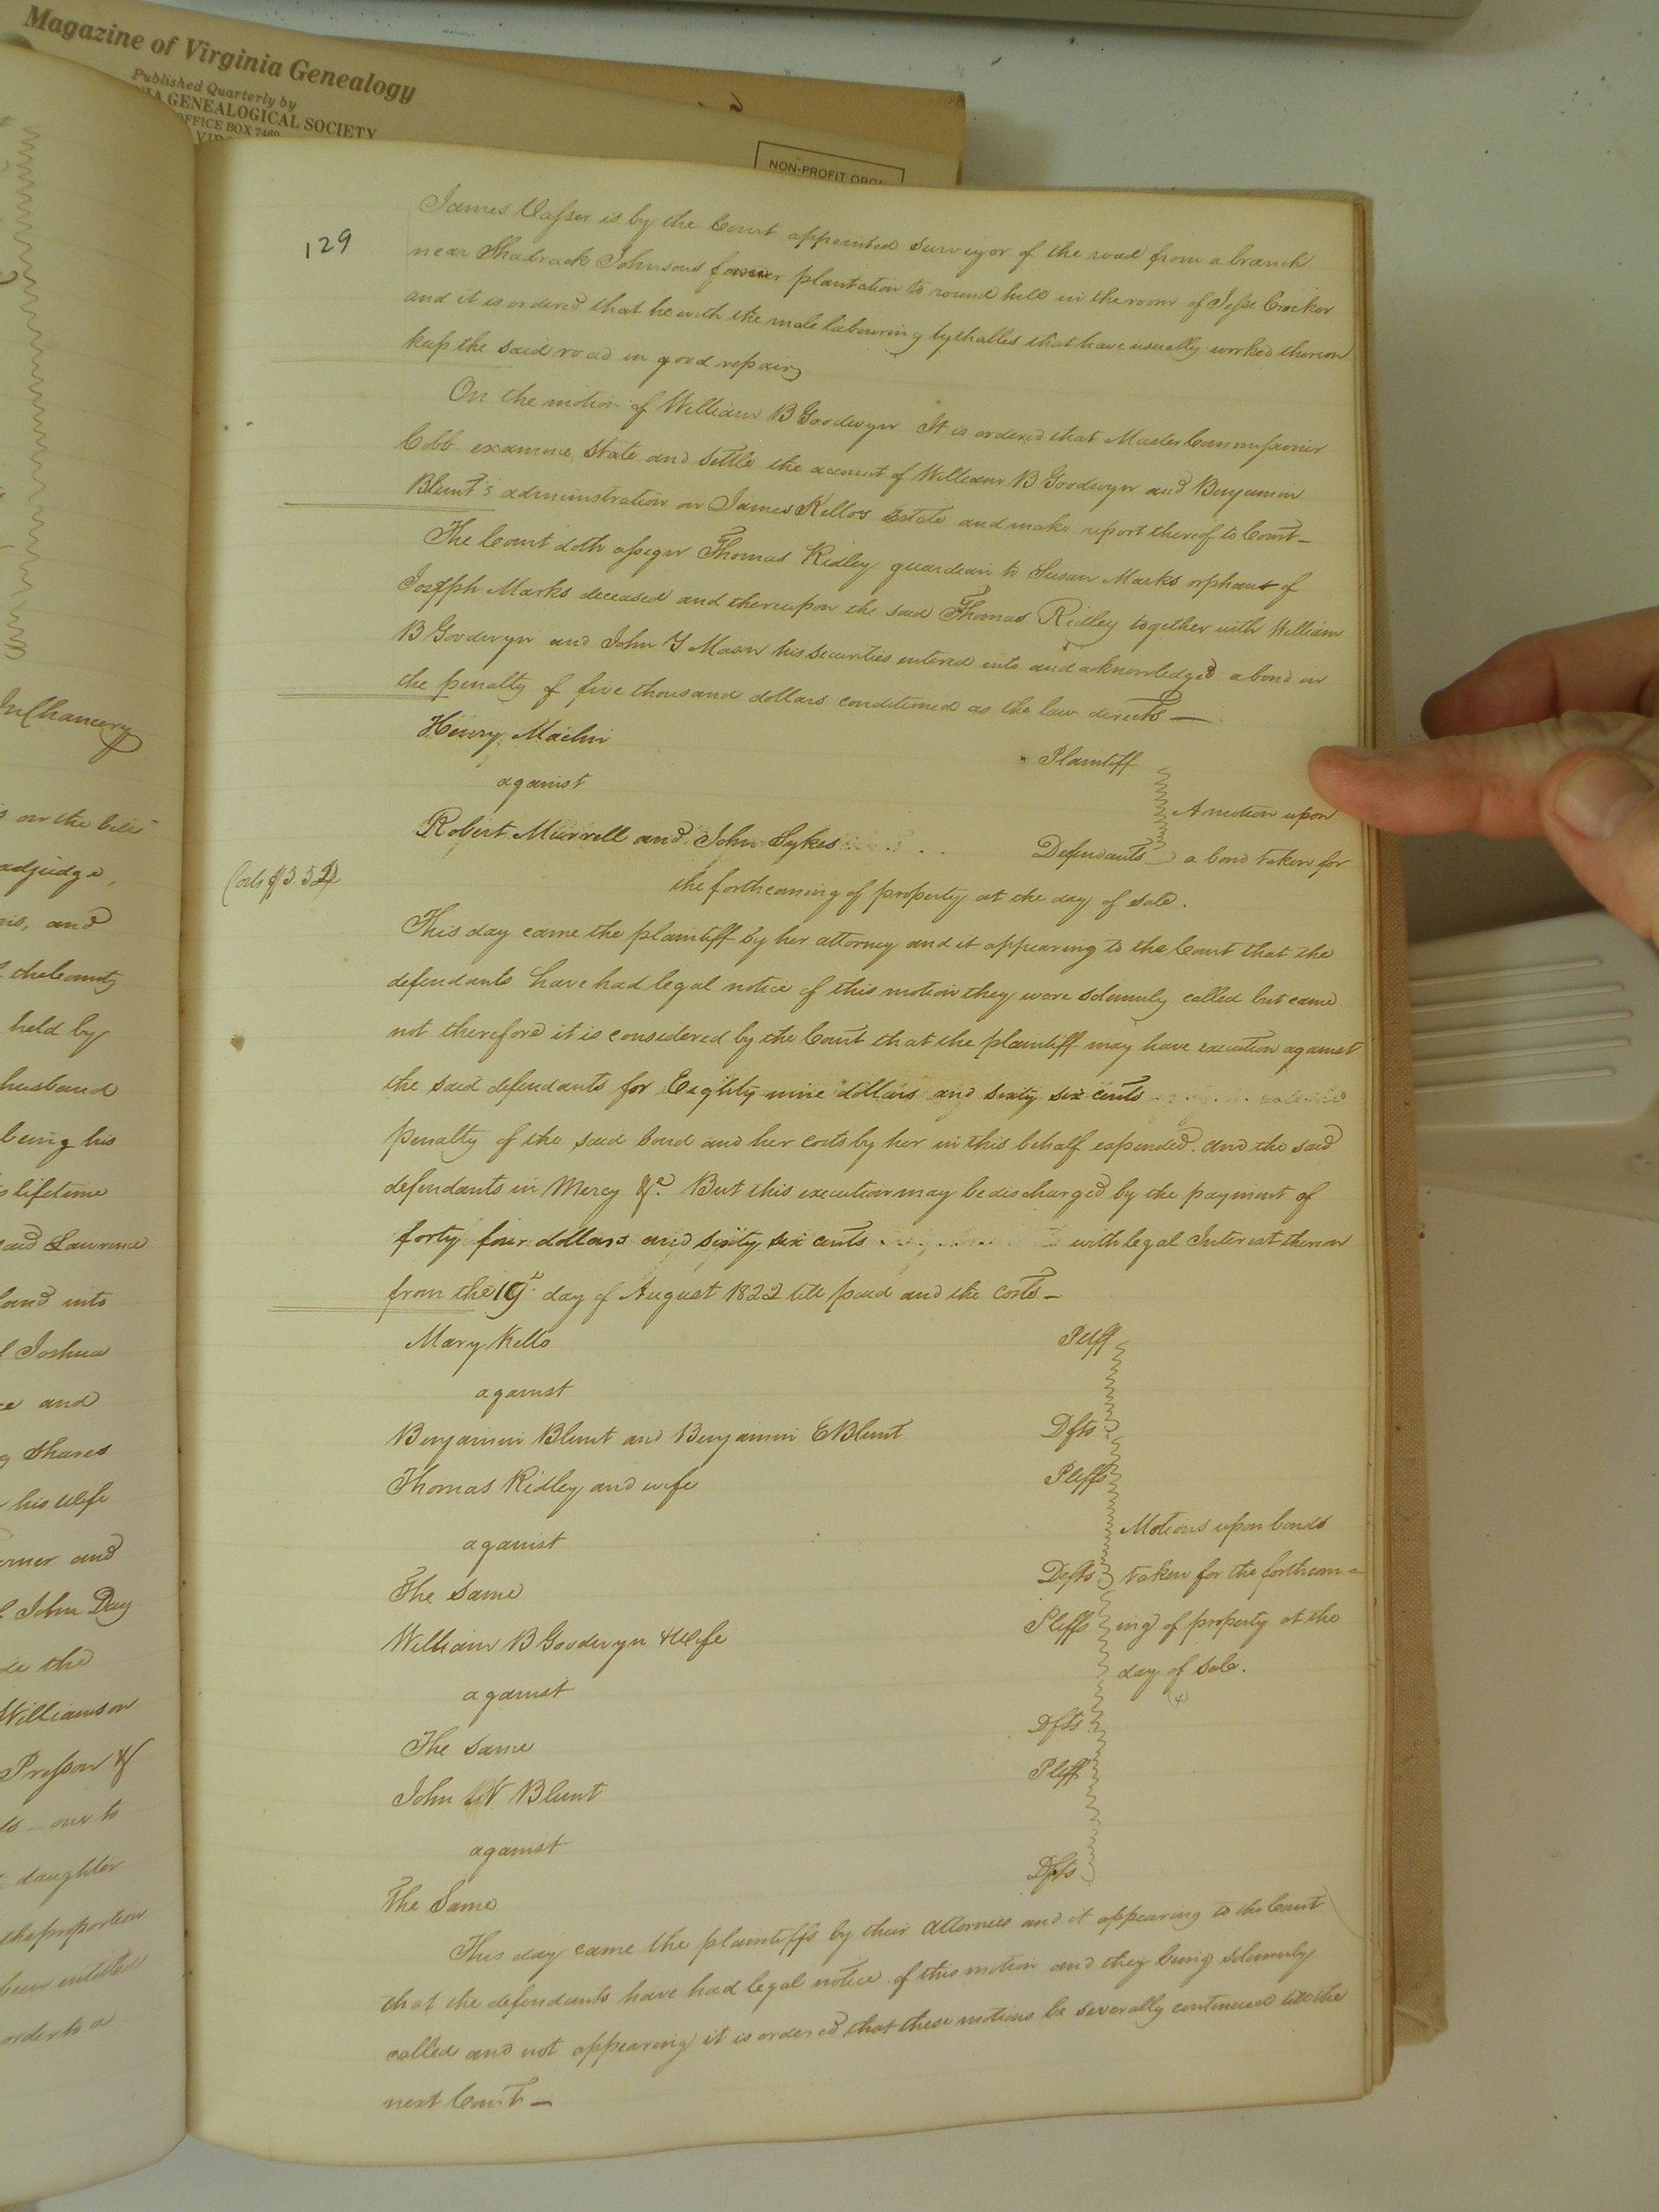 Magazine of Virginia Genealogy
Published Quarterly by
GENEALOGICAL SOCIETY
OFFICE BOX
NON-PROFIT ORGN
129
James Vasser is by the Court appointed surveyor of the road from a branch
near Shadrack Johnsons former plantation to round hill in the room of Jesse Crocker
and it is ordered that he with the male labouring tythables that have usually worked thereon
keep the said road in good repair
On the motion of William B Goodwyn It is ordered that Master Commissioner
Cobb examine State and settle the account of William B Goodwyn and Benjamin
Blunt's administration on James Kellos Estate and make report thereof to Court—
The Court doth assign Thomas Ridley guardian to Susan Marks orphan of
Joseph Marks deceased and thereupon the said Thomas Ridley together with William
B Goodwyn and John Y Mason his securities entered into and acknowledged a bond in
the penalty of five thousand dollars conditioned as the law directs—
Henry Plaintiff
against
A motion upon
Robert Murrell and John Sykes Defendants a bond taken for
Costs $5.52
the forthcoming of property at the day of sale.
This day came the plaintiff by her attorney and it appearing to the Court that the
defendants have had legal notice of this motion they were solemnly called but came
not therefore it is considered by the Court that the plaintiff may have execution against
the said defendants for Eighty nine dollars and sixty six cents
penalty of the said bond and her costs by her in this behalf expended. and the said
defendants in Mercy &c. But this execution may be discharged by the payment of
forty four dollars and sixty six cents with legal Interest thereon
from the 19th day of August 1822 till paid and the costs—
Mary Kello Pltff
against
Benjamin Blunt and Benjamin E Blunt Dfts
Thomas Ridley and wife Pltffs
Motions upon bonds
against
The Same Defts taken for the forthcom=
William B Goodwyn & Wife Pltffs ing of property at the
day of sale.
against
The Same Dfts
John W Blunt Pltff
against
The Same Dfts
This day came the plaintiffs by their attornies and it appearing to the Court
that the defendants have had legal notice of this motion and they being solemnly
called and not appearing it is ordered that these motions be severally continued till the
next Court—
In Chancery
on the bill
adjudge,
and
the County
held by
husband
being his
lifetime
said Lawrence
and into
Joshua
and
Shares
his Wife
and
John Day
the
Williamson
Presson &
one to
daughter
the proportion
been entitled
order to a